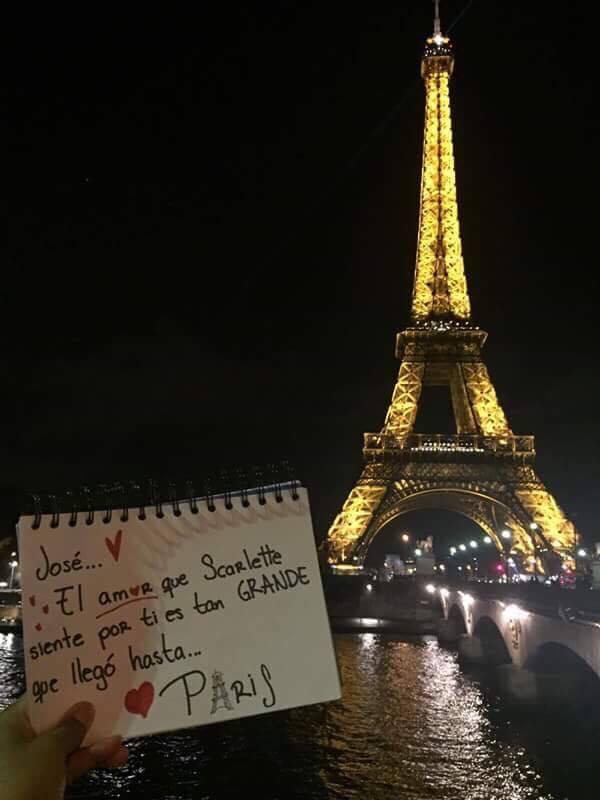 José...
El amor que Scarlette
siente por ti es tan GRANDE
que llegó hasta...
París